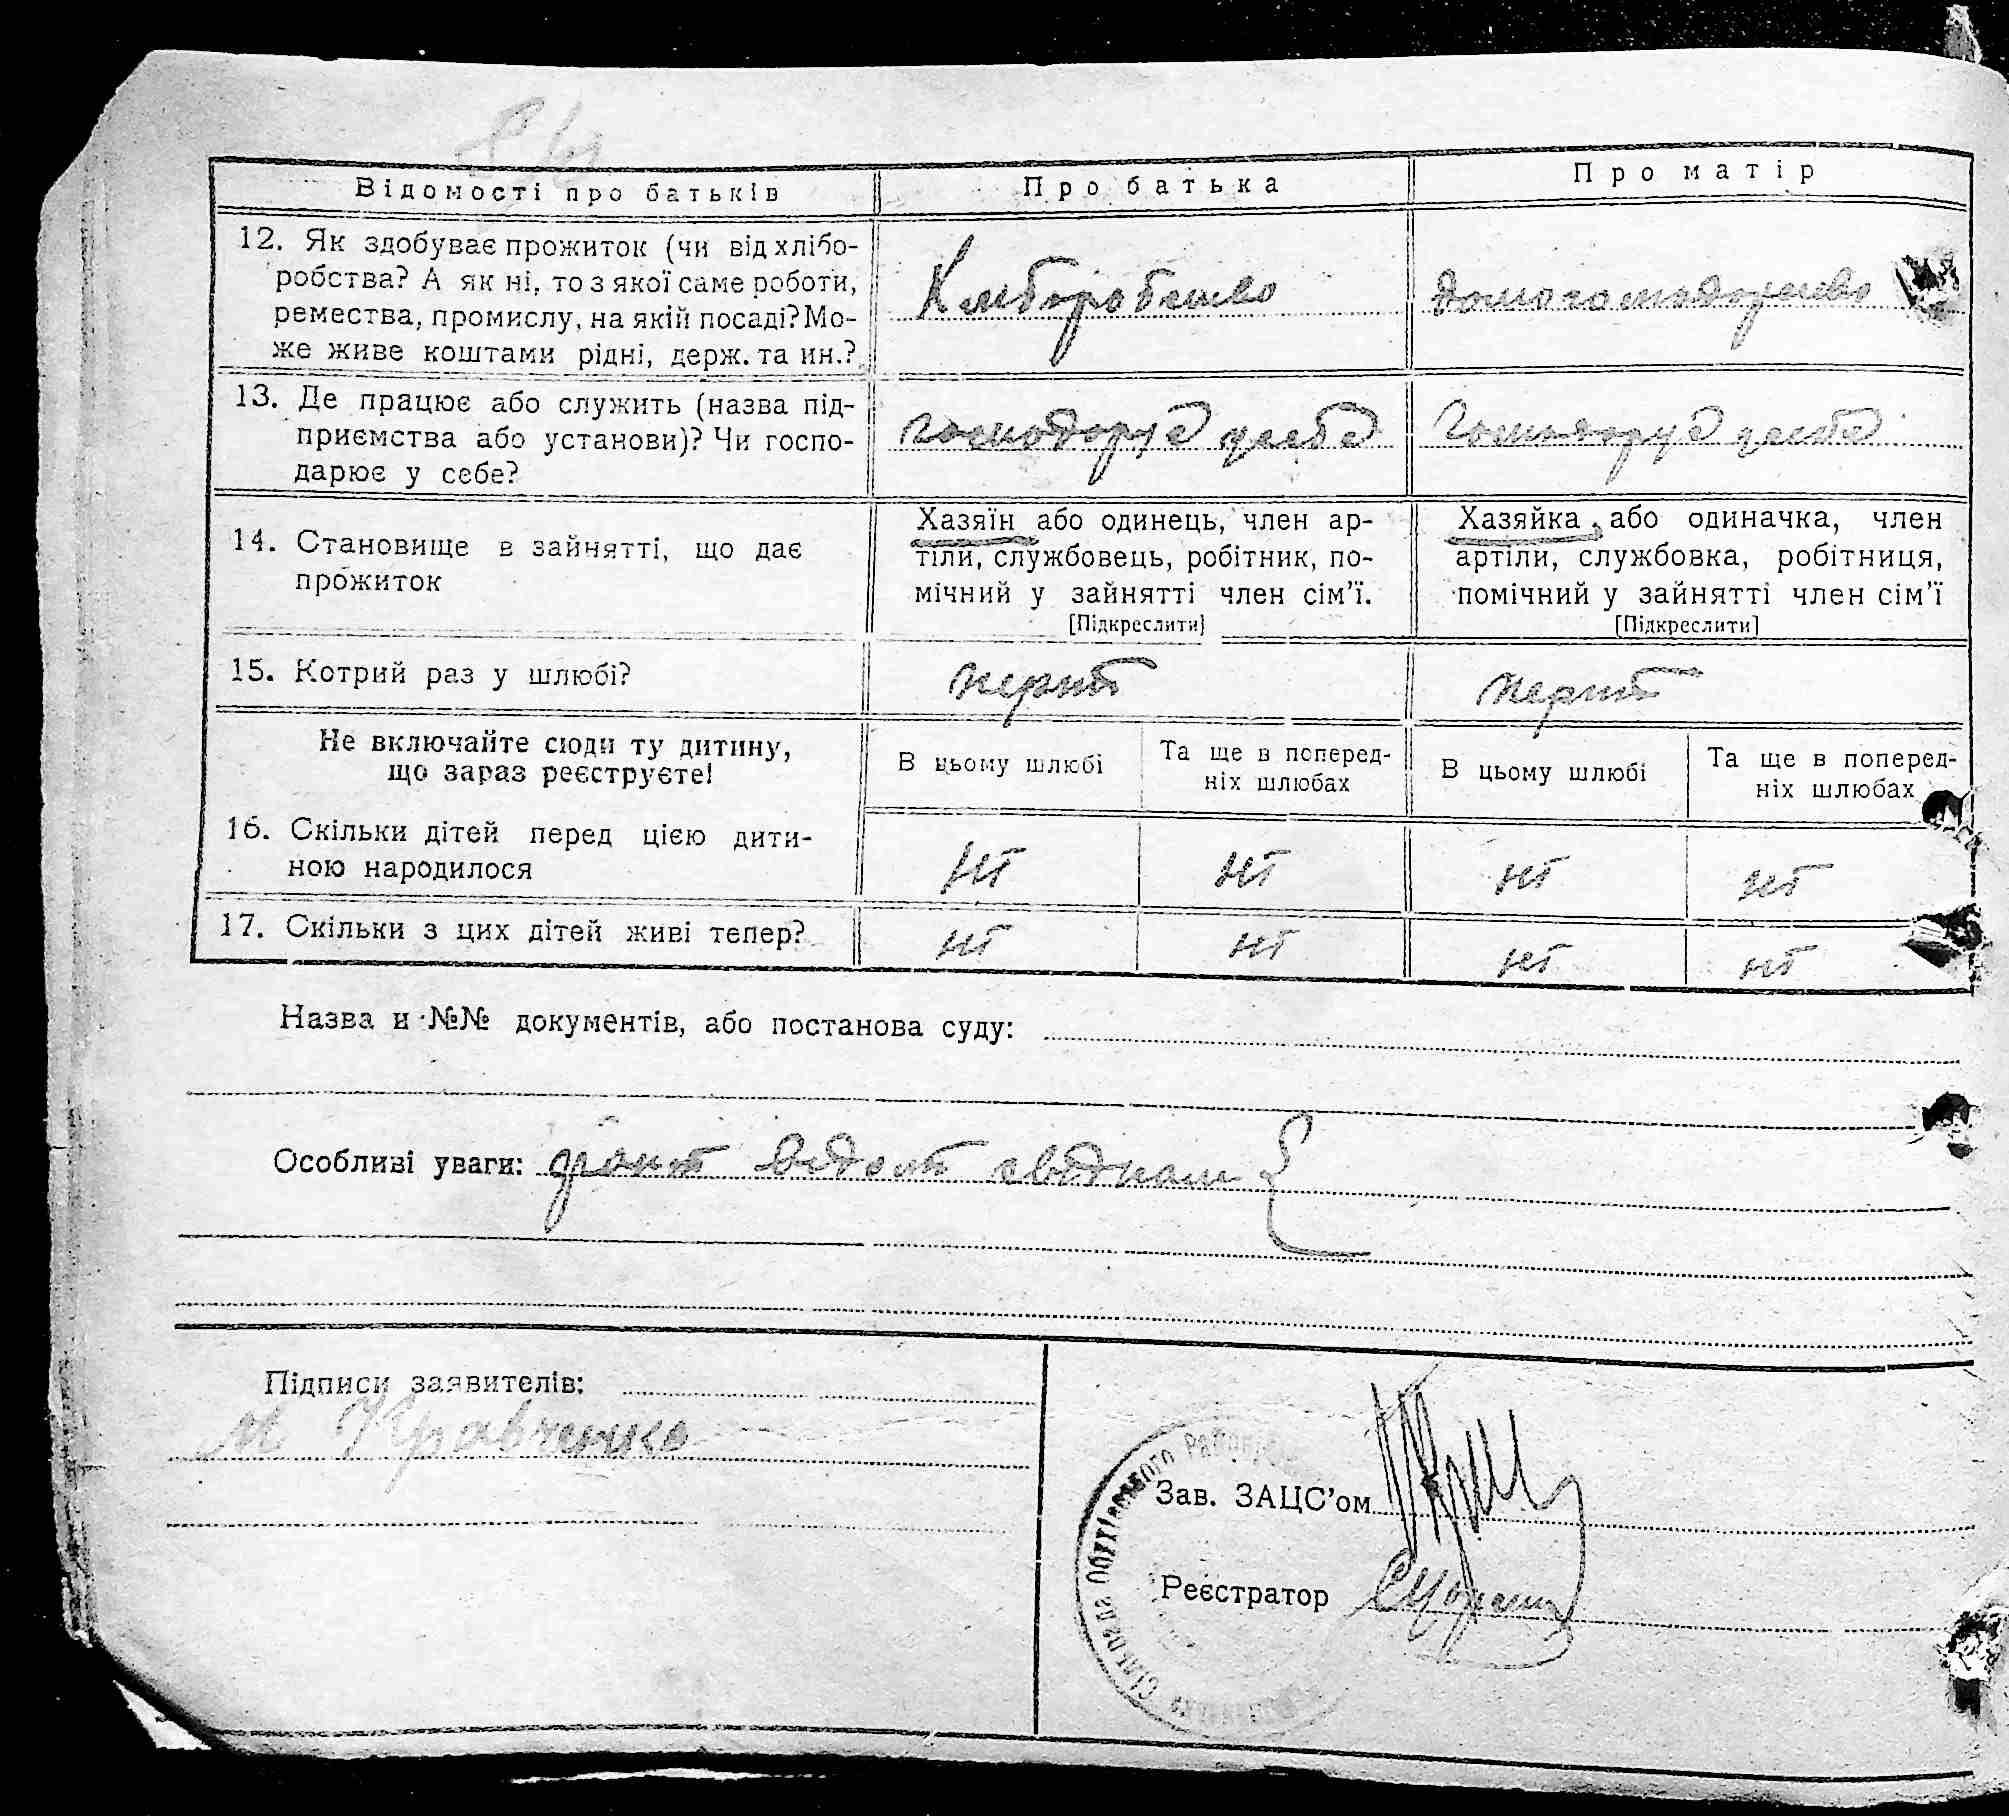 Відомості про батьків
Про батька
Про матір
12. Як здобуває прожиток (чи від хлібо-
робства? А як ні, то з якої саме роботи,
ремества, промислу, на якій посаді? Мо-
же живе коштами рідні, держ. та ин.?
Хліборобство
домогосподарство
13. Де працює або служить (назва під-
приємства або установи)? Чи госпо-
дарює у себе?
господорує у себе
Господорує у себе
14. Становище в зайнятті, що дає
прожиток
Хазяїн або одинець, член ар-
тіли, службовець, робітник, по-
мічний у зайнятті член сім'ї.
[Підкреслити]
Хазяйка, або одиначка, член
артіли, службовка, робітниця,
помічний у зайнятті член сім'ї
[Підкреслити]
15. Котрий раз у шлюбі?
перший
перший
Не включайте сюди ту дитину,
що зараз реєструєте!
В цьому шлюбі
Та ще в поперед-
ніх шлюбах
В цьому шлюбі
Та ще в поперед-
ніх шлюбах
16. Скільки дітей перед цією дити-
ною народилося
ні ні ні ні
17. Скільки з цих дітей живі тепер?
ні ні ні ні
Назва и №№ документів, або постанова суду:
Особливі уваги:
Підписи заявителів:
М Кравченко
Зав. ЗАЦС'ом
Реєстратор
Сільрада Обухівського Район